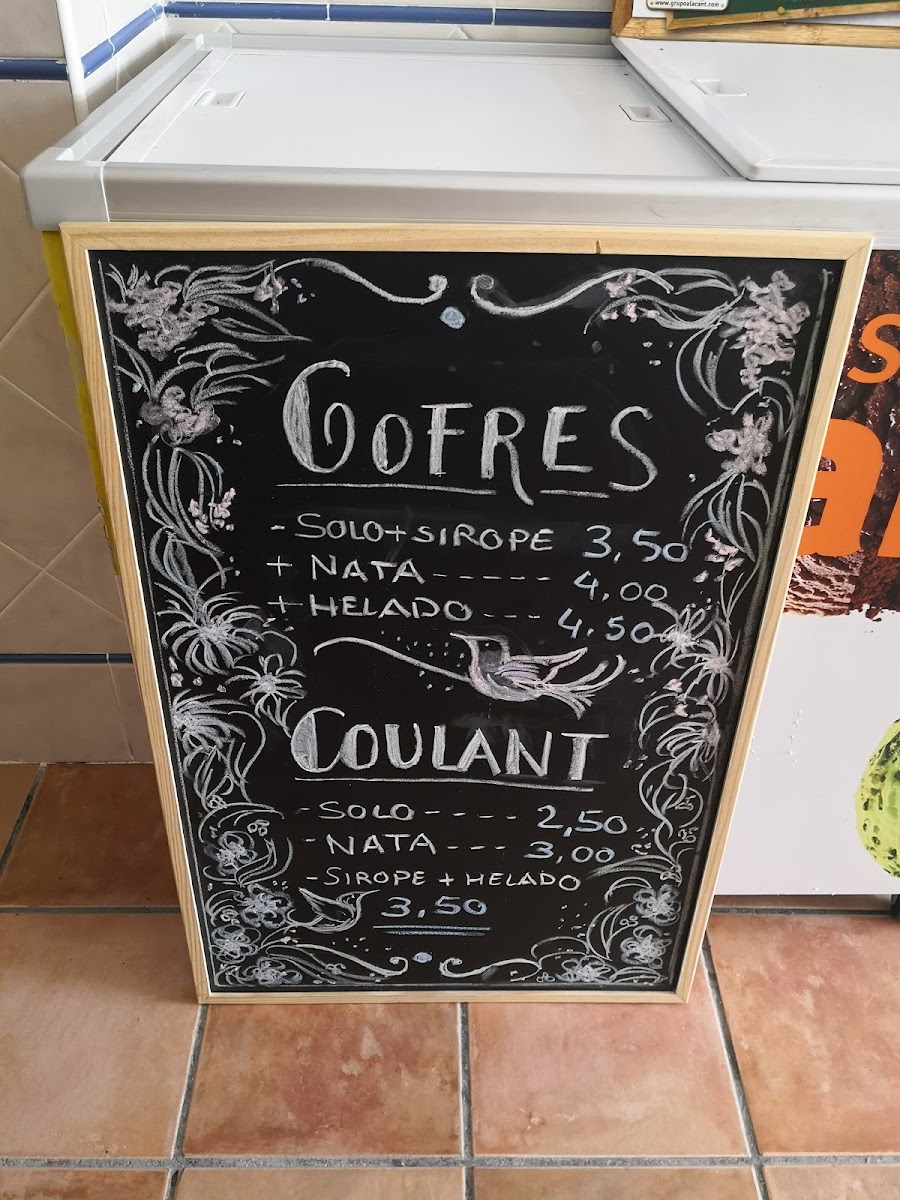 www.grupoalacant.com
GOFRES
- SOLO+SIROPE 3,50
+ NATA------ 4,00
+ HELADO --- 4.50
COULANT
- SOLO---- 2,50
- NATA --- 3,00
- SIROPE + HELADO
3,50